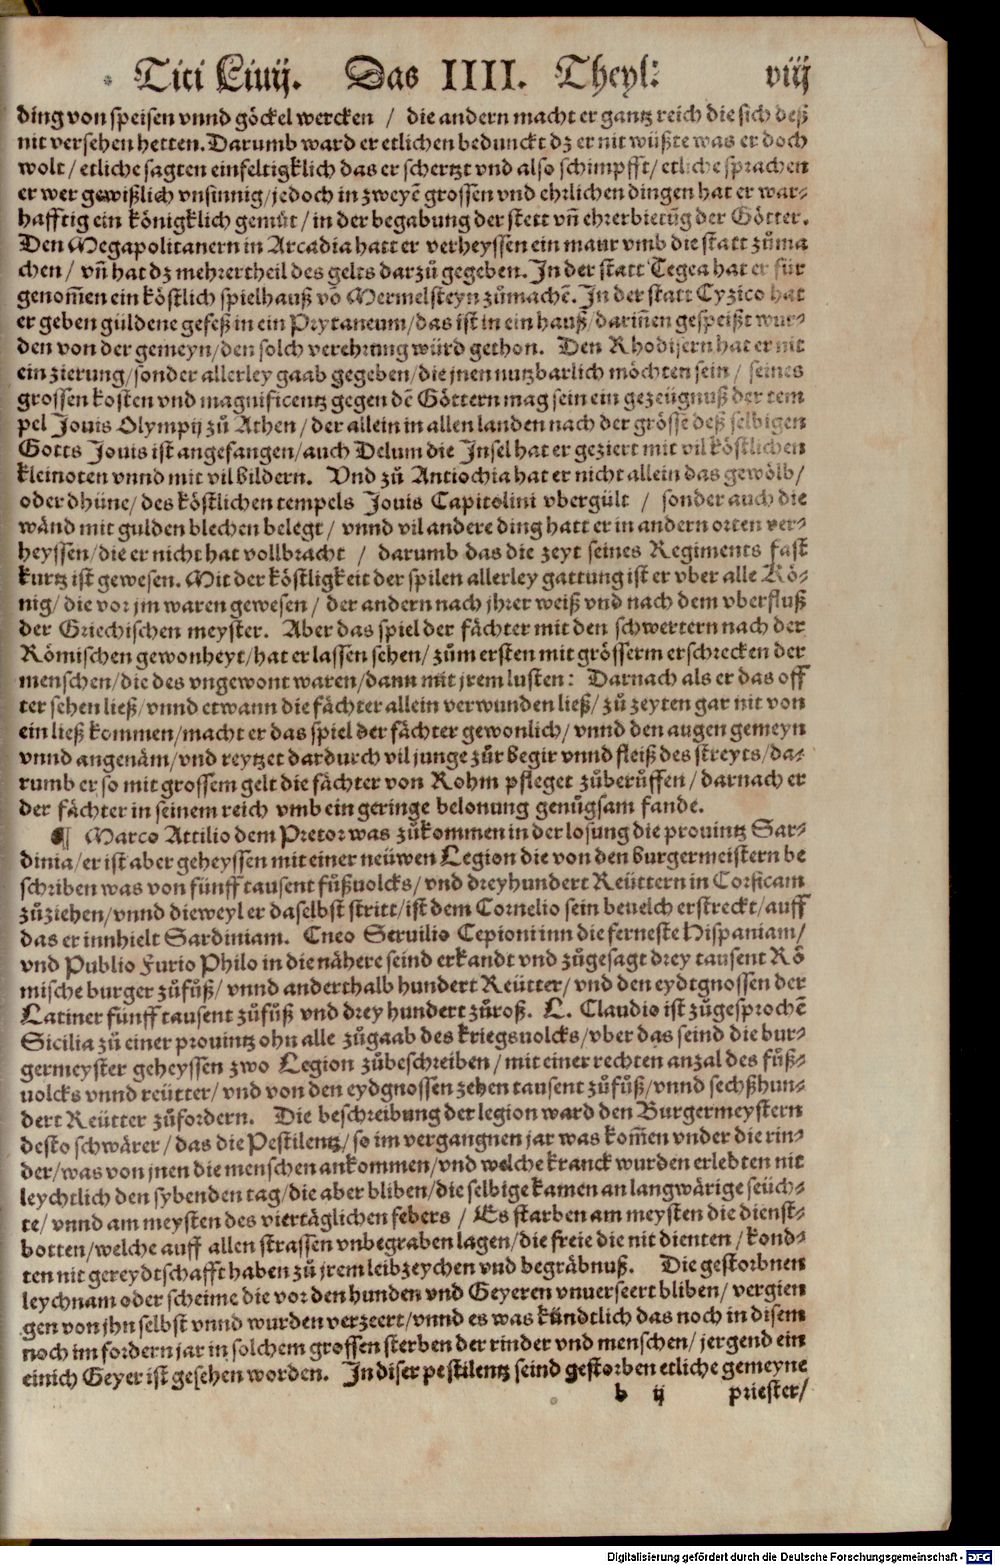 Titi Liuij. Das IIII. Theyl: viij
ding von speisen vnnd göckel wercken / die andern macht er gantz reich die sich deß
nit versehen hetten. Darumb ward er etlichen bedunckt dz er nit wüßte was er doch
wolt / etliche sagten einfeltigklich das er schertzt vnd also schimpfft / etliche sprachen
er wer gewißlich vnsinnig / jedoch in zweyē grossen vnd ehrlichen dingen hat er war⸗
hafftig ein königklich gemüt / in der begabung der stett vñ ehrerbietūg der Götter.
Den Megapolitanern in Arcadia hatt er verheyssen ein maur vmb die statt zůma
chen / vñ hat dz mehrertheil des gelts darzů gegeben. In der statt Tegea hat er für
genom̄en ein köstlich spielhauß vō Mermelsteyn zůmachē. In der statt Cyzico hat
er geben güldene gefeß in ein Prytaneum / das ist in ein hauß / darin̄en gespeißt wur⸗
den von der gemeyn / den solch verehrung würd gethon. Den Rhodisern hat er nit
ein zierung / sonder allerley gaab gegeben / die jnen nutzbarlich möchten sein / seines
grossen kosten vnd magnificentz gegen dē Göttern mag sein ein gezeügnuß der tem
pel Jouis Olympij zů Athen / der allein in allen landen nach der grösse deß selbigen
Gotts Jouis ist angefangen / auch Delum die Insel hat er geziert mit vil köstlichen
kleinoten vnnd mit vil bildern. Vnd zů Antiochia hat er nicht allein das gewölb /
oder dhüne / des köstlichen tempels Jouis Capitolini vbergült / sonder auch die
wänd mit gulden blechen belegt / vnnd vil andere ding hatt er in andern orten ver⸗
heyssen / die er nicht hat vollbracht / darumb das die zeyt seines Regiments fast
kurtz ist gewesen. Mit der köstligkeit der spilen allerley gattung ist er vber alle Kö⸗
nig / die vor jm waren gewesen / der andern nach jhrer weiß vnd nach dem vberfluß
der Griechischen meyster. Aber das spiel der fächter mit den schwertern nach der
Römischen gewonheyt / hat er lassen sehen / zům ersten mit grösserm erschrecken der
menschen / die des vngewont waren / dann mit jrem lusten: Darnach als er das off
ter sehen ließ / vnnd etwann die fächter allein verwunden ließ / zů zeyten gar nit von
ein ließ kommen / macht er das spiel der fächter gewonlich / vnnd den augen gemeyn
vnnd angenäm / vnd reytzet dardurch vil junge zůr begir vnnd fleiß des streyts / da⸗
rumb er so mit grossem gelt die fächter von Rohm pfleget zůberůffen / darnach er
der fächter in seinem reich vmb ein geringe belonung genůgsam fande.
¶ Marco Attilio dem Pretor was zůkommen in der losung die prouintz Sar⸗
dinia / er ist aber geheyssen mit einer neüwen Legion die von den burgermeistern be
schriben was von fünff tausent fůßuolcks / vnd dreyhundert Reüttern in Corsicam
zůziehen / vnnd dieweyl er daselbst stritt / ist dem Cornelio sein beuelch erstreckt / auff
das er innhielt Sardiniam. Cneo Seruilio Cepioni inn die ferneste Hispaniam /
vnd Publio Furio Philo in die nähere seind erkandt vnd zůgesagt drey tausent Rö
mische burger zůfůß / vnnd anderthalb hundert Reütter / vnd den eydtgnossen der
Latiner fünff tausent zůfůß vnd drey hundert zůroß. L. Claudio ist zůgesprochē
Sicilia zů einer prouintz ohn alle zůgaab des kriegsuolcks / vber das seind die bur⸗
germeyster geheyssen zwo Legion zůbeschreiben / mit einer rechten anzal des fůß⸗
uolcks vnnd reütter / vnd von den eydgnossen zehen tausent zůfůß / vnnd sechßhun⸗
dert Reütter zůfordern. Die beschreibung der legion ward den Burgermeystern
desto schwärer / das die Pestilentz / so im vergangnen jar was kom̄en vnder die rin⸗
der / was von jnen die menschen ankommen / vnd welche kranck wurden erlebten nit
leychtlich den sybenden tag / die aber bliben / die selbige kamen an langwärige seüch⸗
te / vnnd am meysten des viertäglichen febers / Es starben am meysten die dienst⸗
botten / welche auff allen strassen vnbegraben lagen / die freie die nit dienten / kond⸗
ten nit gereydtschafft haben zů jrem leibzeychen vnd begräbnuß. Die gestorbnen
leychnam oder scheime die vor den hunden vnd Geyeren vnuerseert bliben / vergien
gen von jhn selbst vnnd wurden verzeert / vnnd es was kündtlich das noch in disem
noch im fordern jar in solchem grossen sterben der rinder vnd menschen / jergend ein
einich Geyer ist gesehen worden. In diser pestilentz seind gestorben etliche gemeyne
b ij priester /
Digitalisierung gefördert durch die Deutsche Forschungsgemeinschaft - DFG